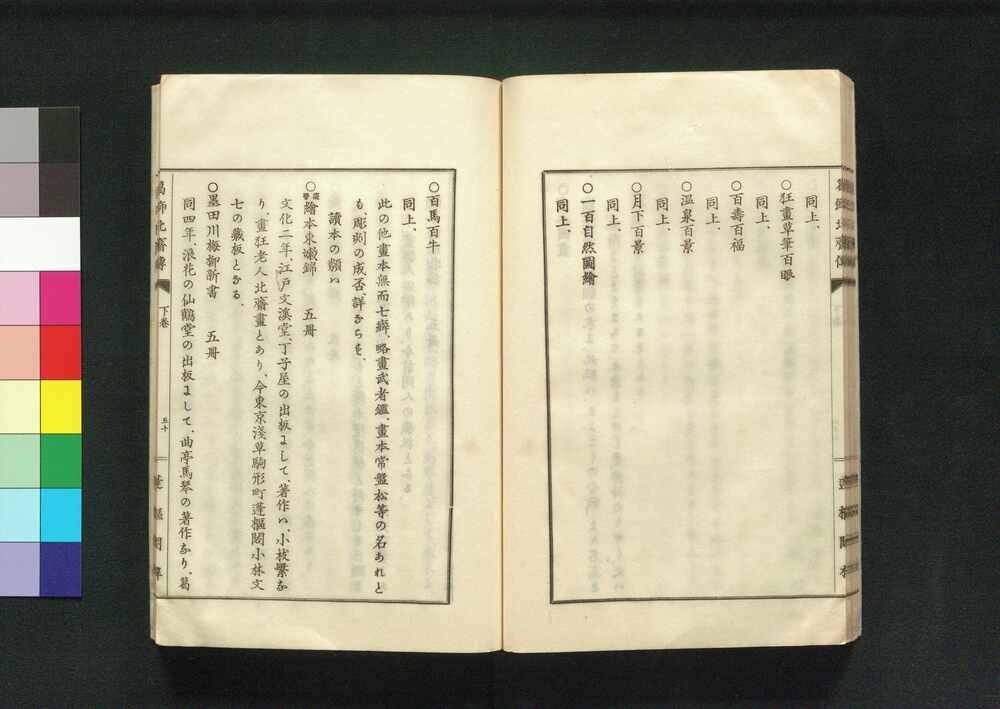 同上、
○狂畫草筆百眼
同上、
○百壽百福
同上、
○溫泉百景
同上、
○月下百景
同上、
○一百自然圖繪
同上、
○百馬百牛
同上、
此の他畫本無而七癖、略畫武者鑑、畫本常盤松等の名あれど
も、彫刻の成否、詳ならず、
讀本の類ハ
○繪本東嫩錦 五冊
文化二年、江戸文溪堂、丁子屋の出板にして、著作ハ、小枝繁な
り、畫狂老人北齋畫とあり、今東京淺草駒形町蓬樞閣小林文
七の藏板となる、
○墨田川梅柳新書 五冊
同四年、浪花の仙鶴堂の出板にして、曲亭馬琴の著作なり、葛
飾北齋傳
下卷
五十
蓬樞閣梓